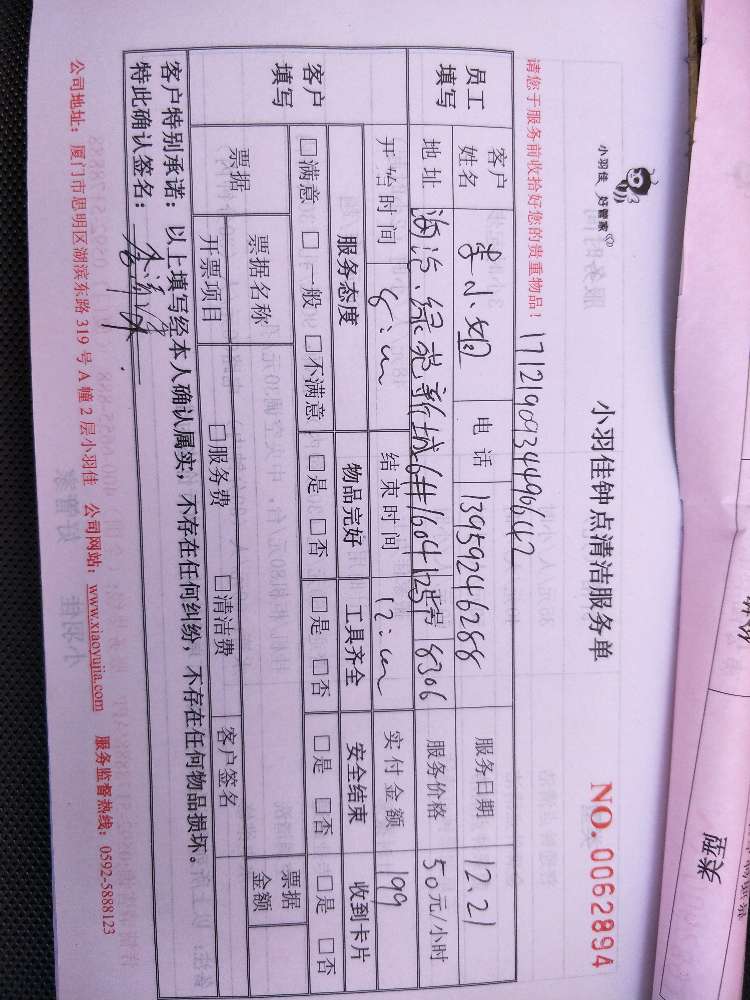 小羽佳 好管家
小羽佳钟点清洁服务单
NO. 0062894
请您于服务前收拾好您的贵重物品!
员工填写
客户姓名 李小姐 电话 13959246288 服务日期 12.21
地址 海沧.绿苑新城6# 1604 工号 8306 服务价格 50元/小时
开始时间 8:00 结束时间 12:00 实付金额 199
客户填写
服务态度 物品完好 工具齐全 安全结束 收到卡片
□满意 □一般 □不满意 □是 □否 □是 □否 □是 □否 □是 □否
票据 票据名称 票据金额
开票项目 □服务费 □清洁费 客户签名
客户特别承诺:以上填写经本人确认属实,不存在任何纠纷,不存在任何物品损坏。
特此确认签名:
公司地址:厦门市思明区湖滨东路 319 号 A 幢 2 层小羽佳 公司网站:www.xiaoyujia.com 服务监督热线:0592-5888123